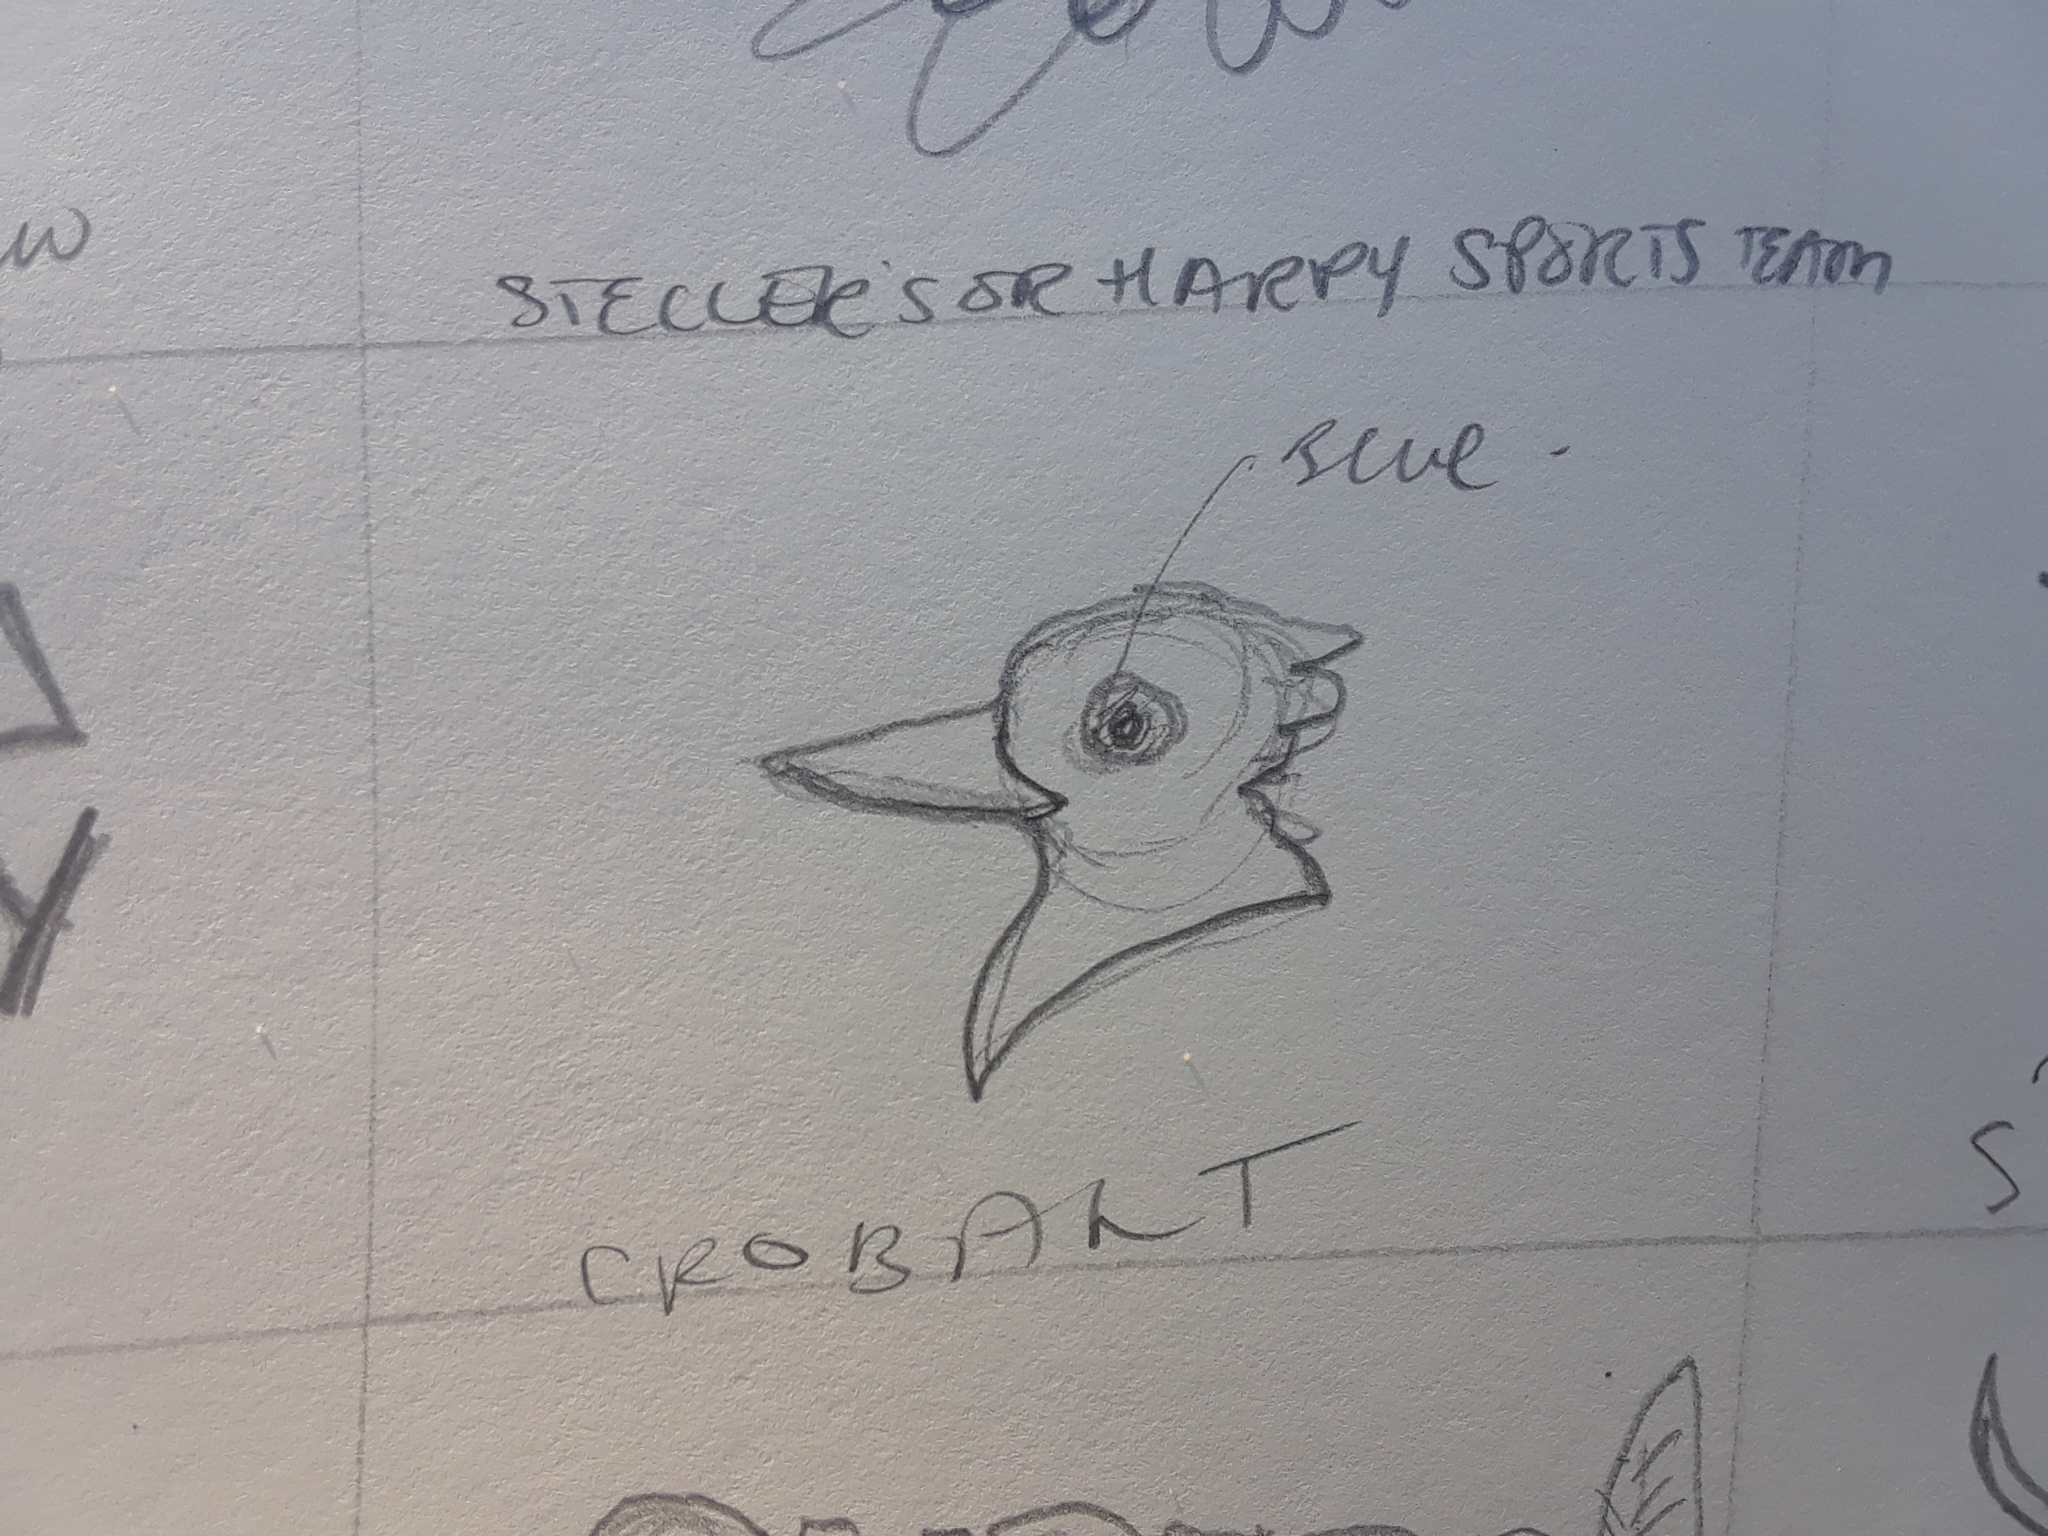 W
STELLER'S OR HARPY SPORTS TEAM
BLUE
CROBALT
S